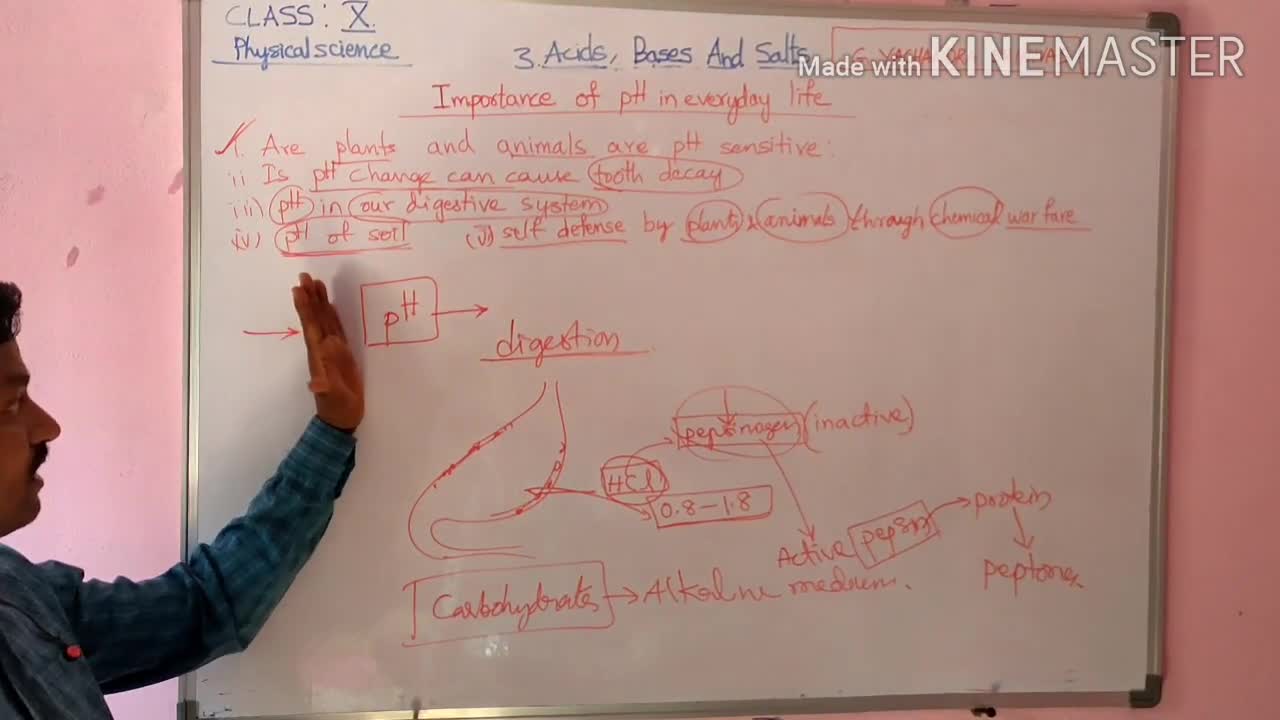 CLASS: X.
Physical science
3. Acids, Bases And Salts
Made with KINEMASTER
Importance of pH in everyday life
i. Are plants and animals are pH sensitive:
ii Is pH change can cause tooth decay
iii) pH in our digestive system
iv) pH of soil (v) self defense by plants & animals through chemical war fare
pH
digestion
pepsinogen (inactive)
HCl
0.8-1.8
Active pepsin
protein
peptones
Carbohydrates → Alkaline medium.